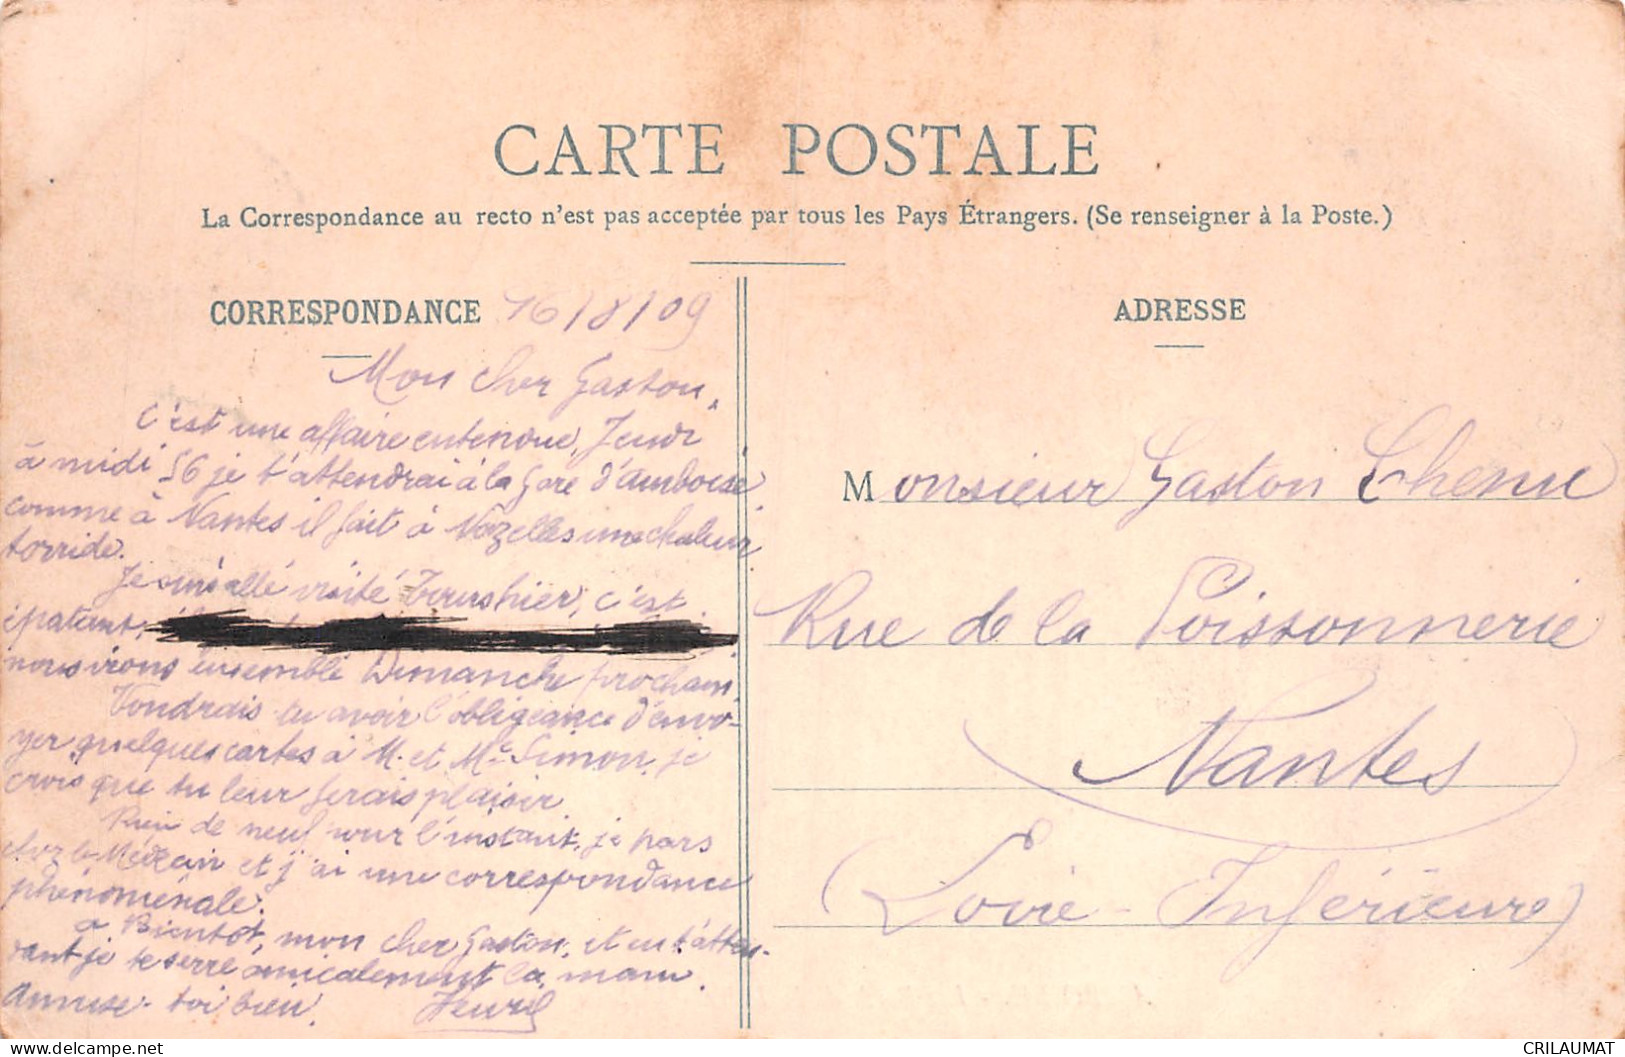 CARTE POSTALE
La Correspondance au recto n'est pas acceptée par tous les Pays Étrangers. (Se renseigner à la Poste.)
CORRESPONDANCE 16/8/09
Mon cher Gaston,
C'est une affaire entendue, Jeudi
à midi 56 je t'attendrai à la Gare d'Amboise.
comme à Nantes il fait à Nazelles une chaleur
torride.
Je suis allé visité, c'est
épatant,
nous irons ensemble Dimanche prochain.
Voudrais-tu avoir l'obligeance d'envo-
yer quelques cartes à M. et Me Simon, je
crois que tu leur ferais plaisir.
Rien de neuf pour l'instant, je pars
chez le Médecin et j'ai une correspondance
phénoménale.
A Bientôt, mon cher Gaston, et en t'atten-
dant je te serre amicalement la main.
Amuse-toi bien.
ADRESSE
Monsieur Gaston Chenu
Rue de la Poissonnerie
Nantes
(Loire-Inférieure)
www.delcampe.net
CRILAUMAT